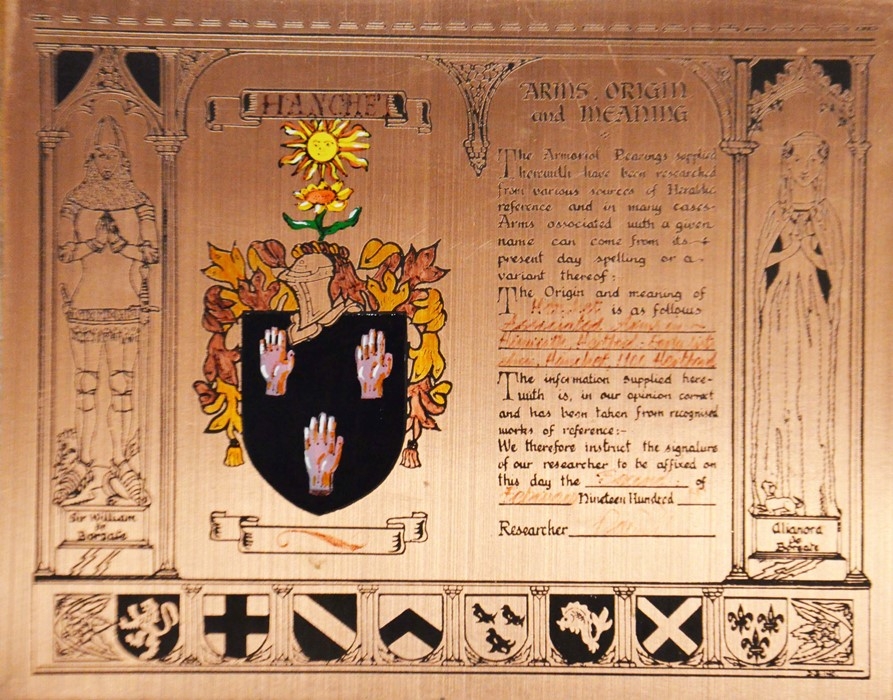 HANCHET
ARMS, ORIGIN
and MEANING
The Armorial Bearings supplied
herewith have been researched
from various sources of Heraldic
reference and in many cases
Arms associated with a given
name can come from its
present day spelling or a
variant thereof:
The Origin and meaning of
is as follows
Associated
The information supplied here-
with is, in our opinion correct
and has been taken from recognised
works of reference:-
We therefore instruct the signature
of our researcher to be affixed on
this day the of
Nineteen Hundred
Researcher
Sir William
de
Borgate
Alianora
de
Borgate